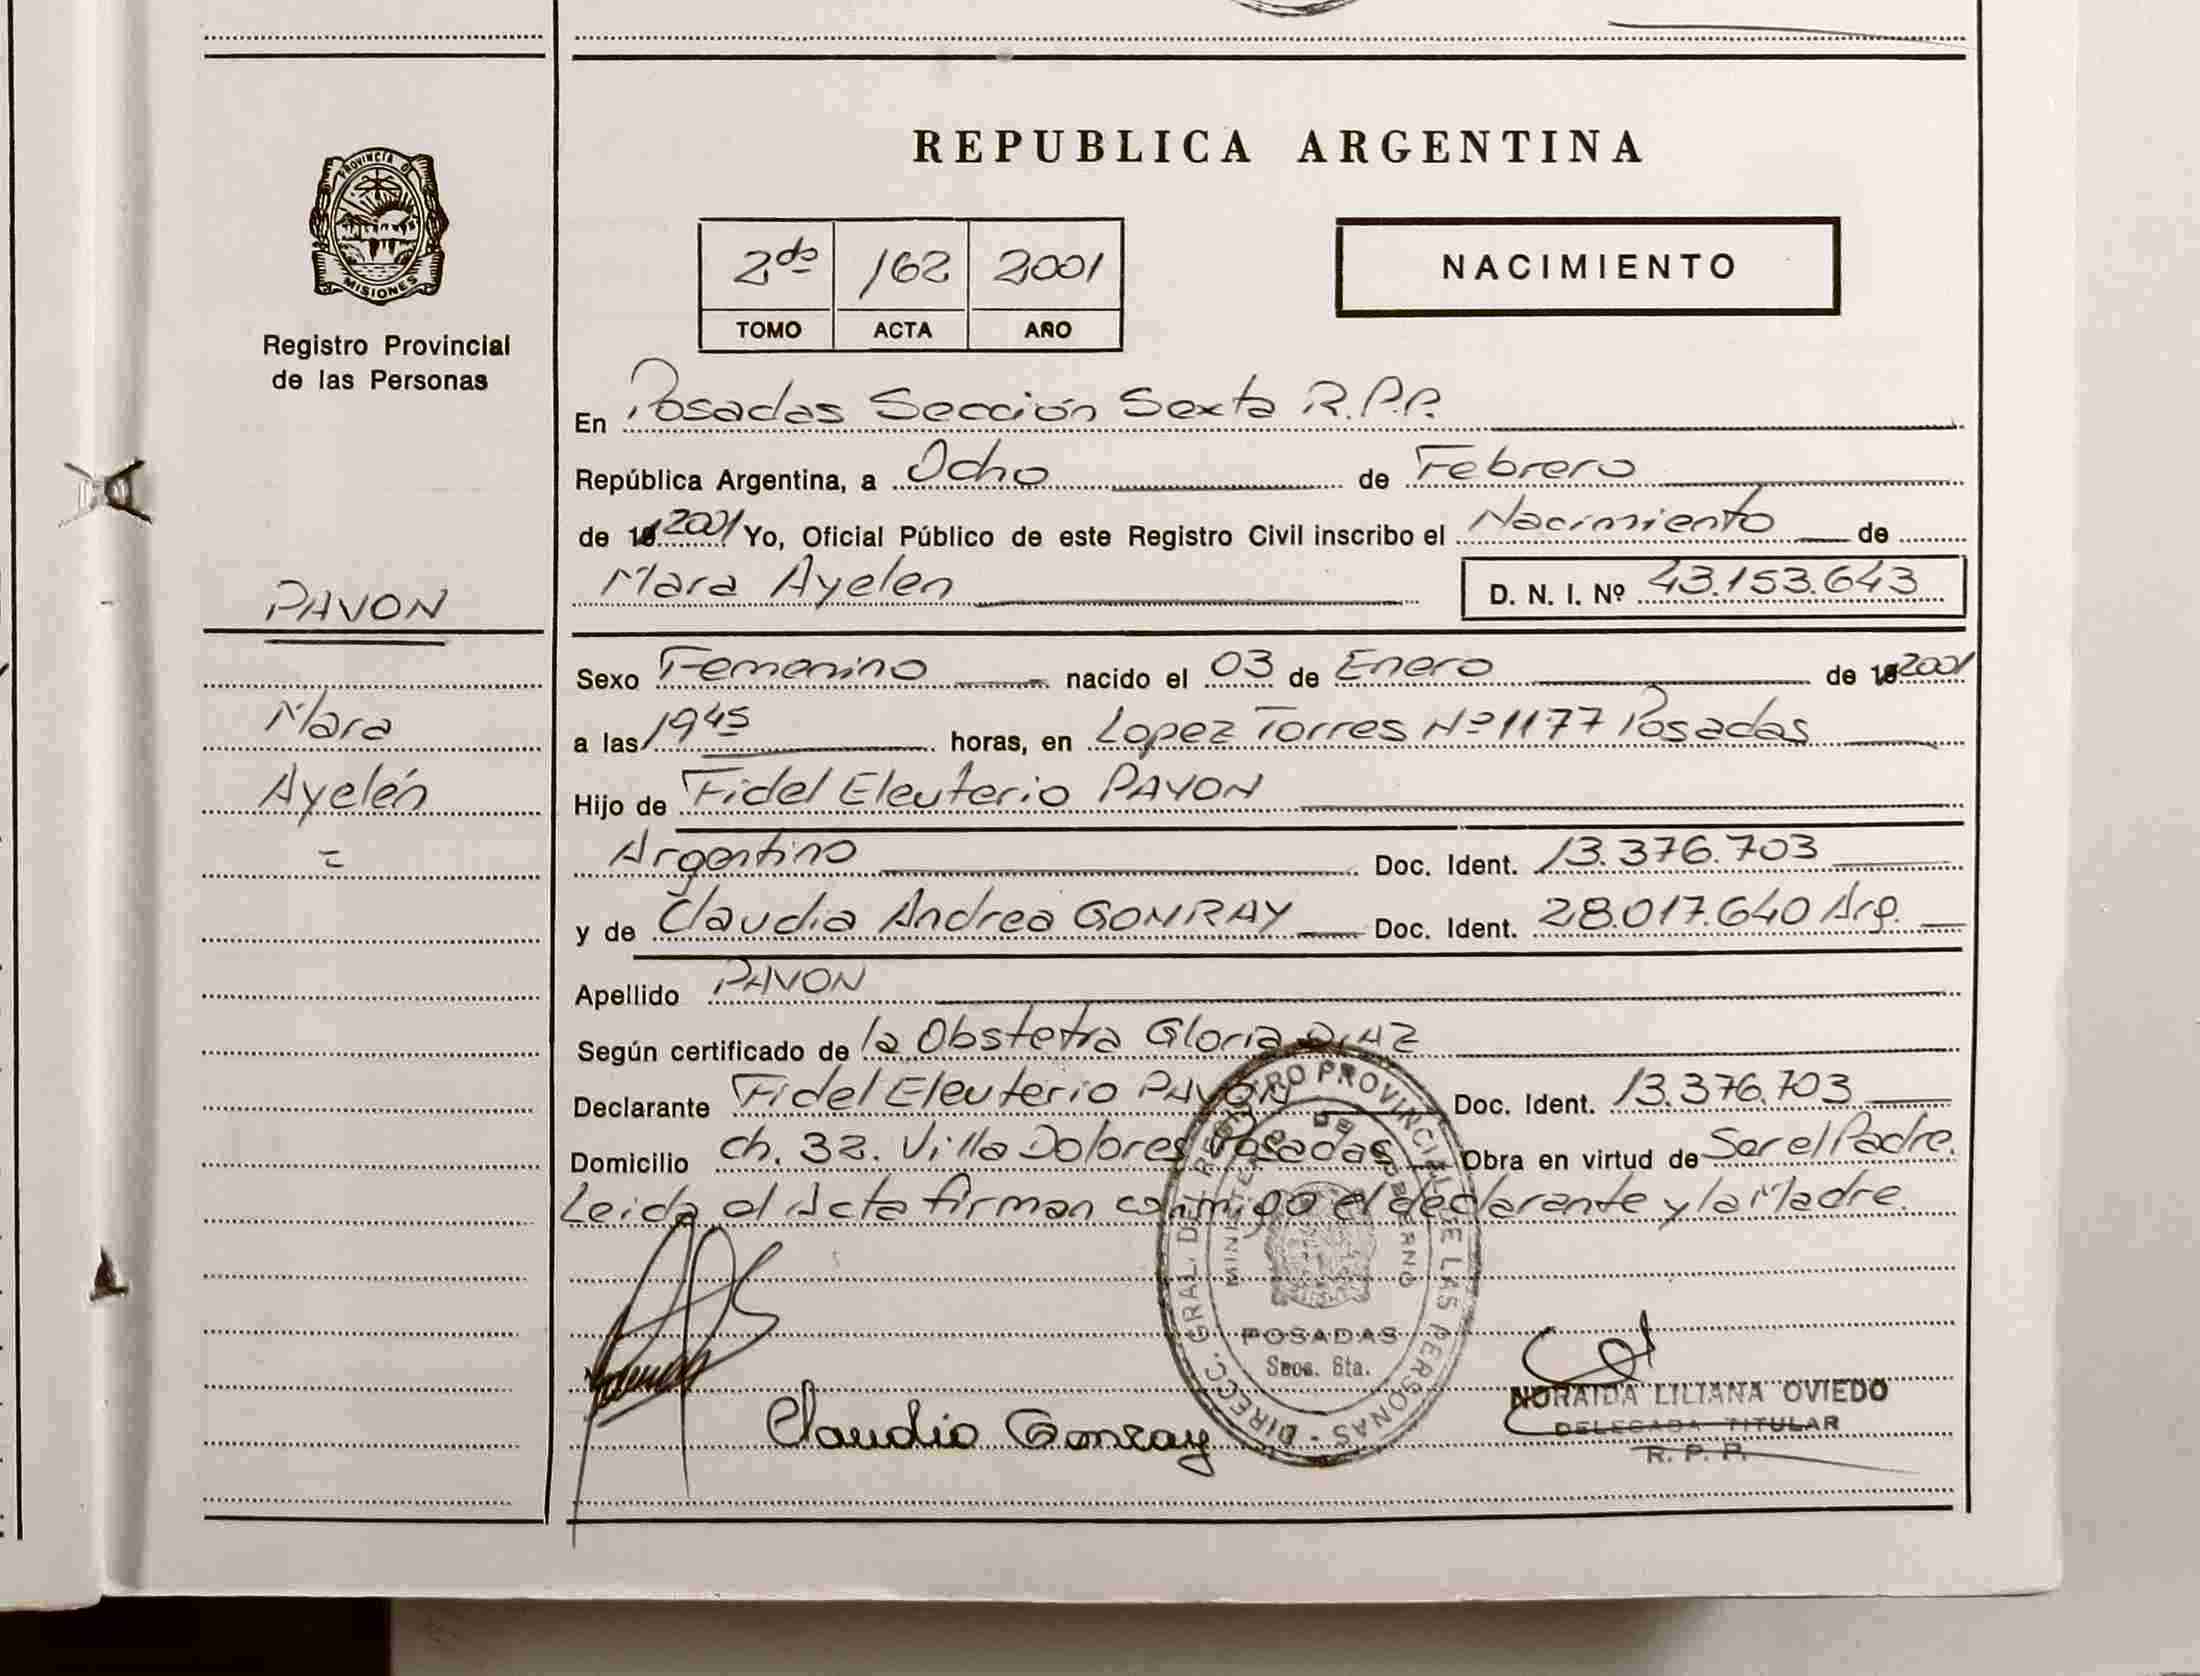 PROVINCIA D
MISIONES
Registro Provincial
de las Personas
PAVON
Mara
Ayelén
=
REPUBLICA ARGENTINA
2do 162 2001
TOMO ACTA AÑO
NACIMIENTO
En Posadas Sección Sexta R.P.P.
República Argentina, a Ocho de Febrero
de 19 2001 Yo, Oficial Público de este Registro Civil inscribo el Nacimiento de
Mara Ayelen D. N. I. Nº 43.153.643
Sexo Femenino nacido el 03 de Enero de 19 2001
a las 19 45 horas, en Lopez Torres Nº 1177 Posadas
Hijo de Fidel Eleuterio PAVON
Argentino Doc. Ident. 13.376.703
y de Claudia Andrea GONRAY Doc. Ident. 28.017.640 Arg.
Apellido PAVON
Según certificado de la Obstetra Gloria DIAZ
Declarante Fidel Eleuterio PAVON Doc. Ident. 13.376.703
Domicilio ch. 32. Villa Dolores Posadas Obra en virtud de Ser el Padre.
Leida el Acta firman conmigo el declarante y la Madre.
DIRECC. GRAL. DEL REGISTRO PROVINCIAL DE LAS PERSONAS
MINISTERIO DE GOBIERNO
POSADAS
Secc. 6ta.
Claudia Gonray
NORAIDA LILIANA OVIEDO
DELEGADA TITULAR
R. P. P.